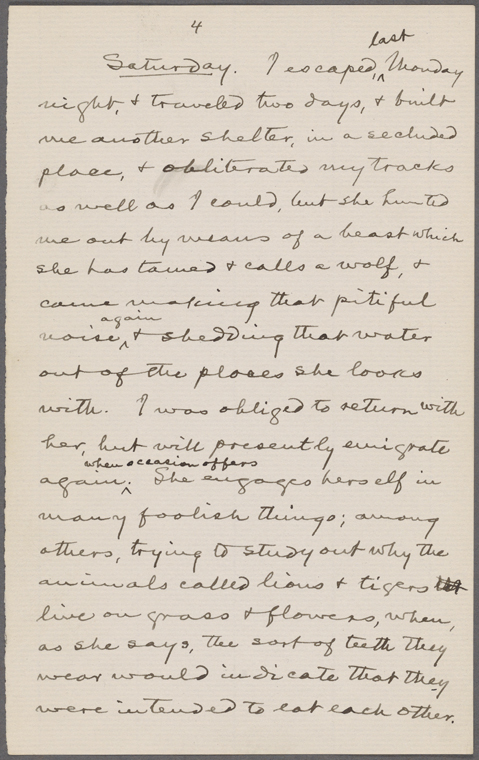 4
Saturday. I escaped last Monday
night, & traveled two days, & built
me another shelter, in a secluded
place, & obliterated my tracks
as well as I could, but she hunted
me out by means of a beast which
she has tamed & calls a wolf, &
came making that pitiful
noise again, & shedding that water
out of the places she looks
with. I was obliged to return with
her, but will presently emigrate
again when occasion offers. She engages herself in
many foolish things; among
others, trying to study out why the
animals called lions & tigers
live on grass & flowers, when,
as she says, the sort of teeth they
wear would indicate that they
were intended to eat each other.